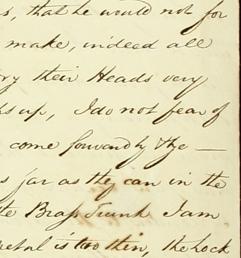 s, that he would not for
make, indeed all
ry their Heads very
up, I do not fear of
come forward by the —
s far as the can in the
te Brass Trunk I am
metal is two thin, the Lock